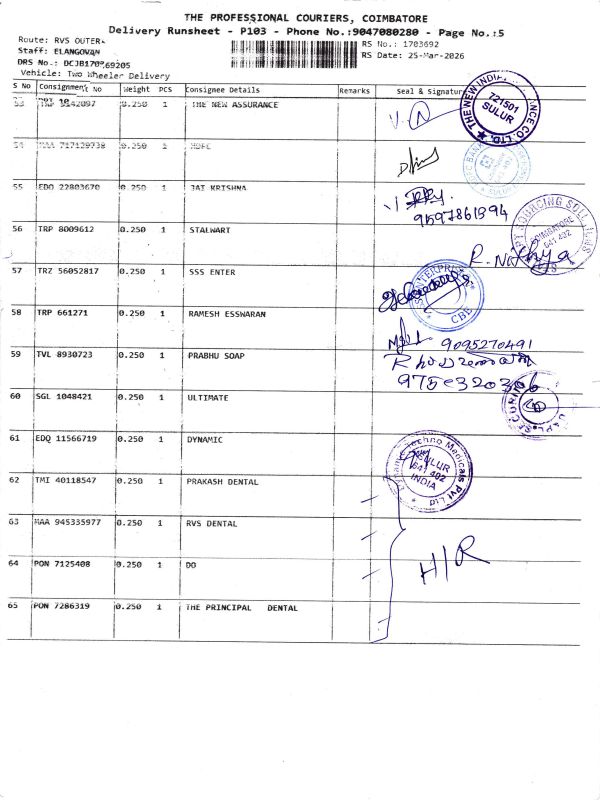 THE PROFESSIONAL COURIERS, COIMBATORE
Delivery Runsheet - P103 - Phone No.:9047080280 - Page No.:5
Route: RVS OUTER
Staff: ELANGOVAN
DRS No.:
Vehicle: Two Wheeler Delivery
RS No.: 1703692
RS Date: 25-Mar-2026
S No Consignment No Weight PCS Consignee Details Remarks Seal & Signature
53 0.250 1 THE NEW ASSURANCE
THE NEW INDIA CO. LTD.
721501
SULUR
54 MAA 717129738 0.250 1 HDFC
55 EDO 22803670 0.250 1 JAI KRISHNA
9597861394
56 TRP 8009612 0.250 1 STALWART
COIMBATORE
641 402
R. Nithya
57 TRZ 56052817 0.250 1 SSS ENTER
CBE
58 TRP 661271 0.250 1 RAMESH ESSWARAN
9095270491
59 TVL 8930723 0.250 1 PRABHU SOAP
60 SGL 1048421 0.250 1 ULTIMATE
61 EDQ 11566719 0.250 1 DYNAMIC
Dynamic Techno Medicals Pvt Ltd
SULUR
641 402
INDIA
62 TMI 40118547 0.250 1 PRAKASH DENTAL
63 MAA 945335977 0.250 1 RVS DENTAL
64 PON 7125408 0.250 1 DO
H/R
65 PON 7286319 0.250 1 THE PRINCIPAL DENTAL